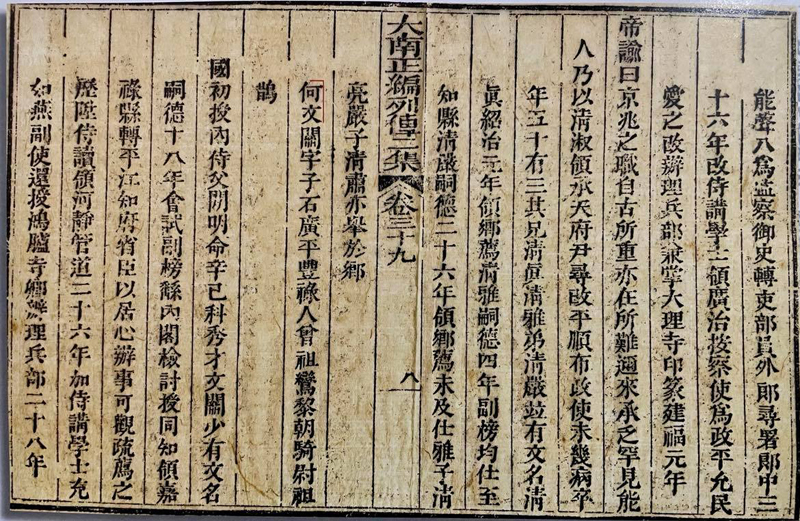 能聲入為監察御史轉吏部員外郎尋署郎中三
十六年改侍講學士領廣治按察使為政平允民
愛之改辦理兵部兼掌大理寺印篆建福元年
帝諭曰京兆之職自古所重亦在所難邇來承乏罕見能
人乃以清淑領承天府尹尋改平順布政使未幾病卒
年五十有三其兄清㒨清雅弟清嚴並有文名清
㒨紹治元年領鄉薦清雅嗣德四年副榜均仕至
知縣清嚴嗣德二十六年領鄉薦未及仕雅子清
亮嚴子清肅亦舉於鄉
大南正編列傳二集 卷三十九 八
何文關字子石廣平豐祿人曾祖鸞黎朝騎尉祖
鵲
國初授內侍父開明命辛巳科秀才文關少有文名
嗣德十八年會試副榜繇內閣檢討授同知領嘉
祿縣轉平江知府省臣以居心辦事可觀疏薦之
歷陞侍讀領河靜管道二十六年加侍講學士充
如燕副使還授鴻臚寺卿辦理兵部二十八年